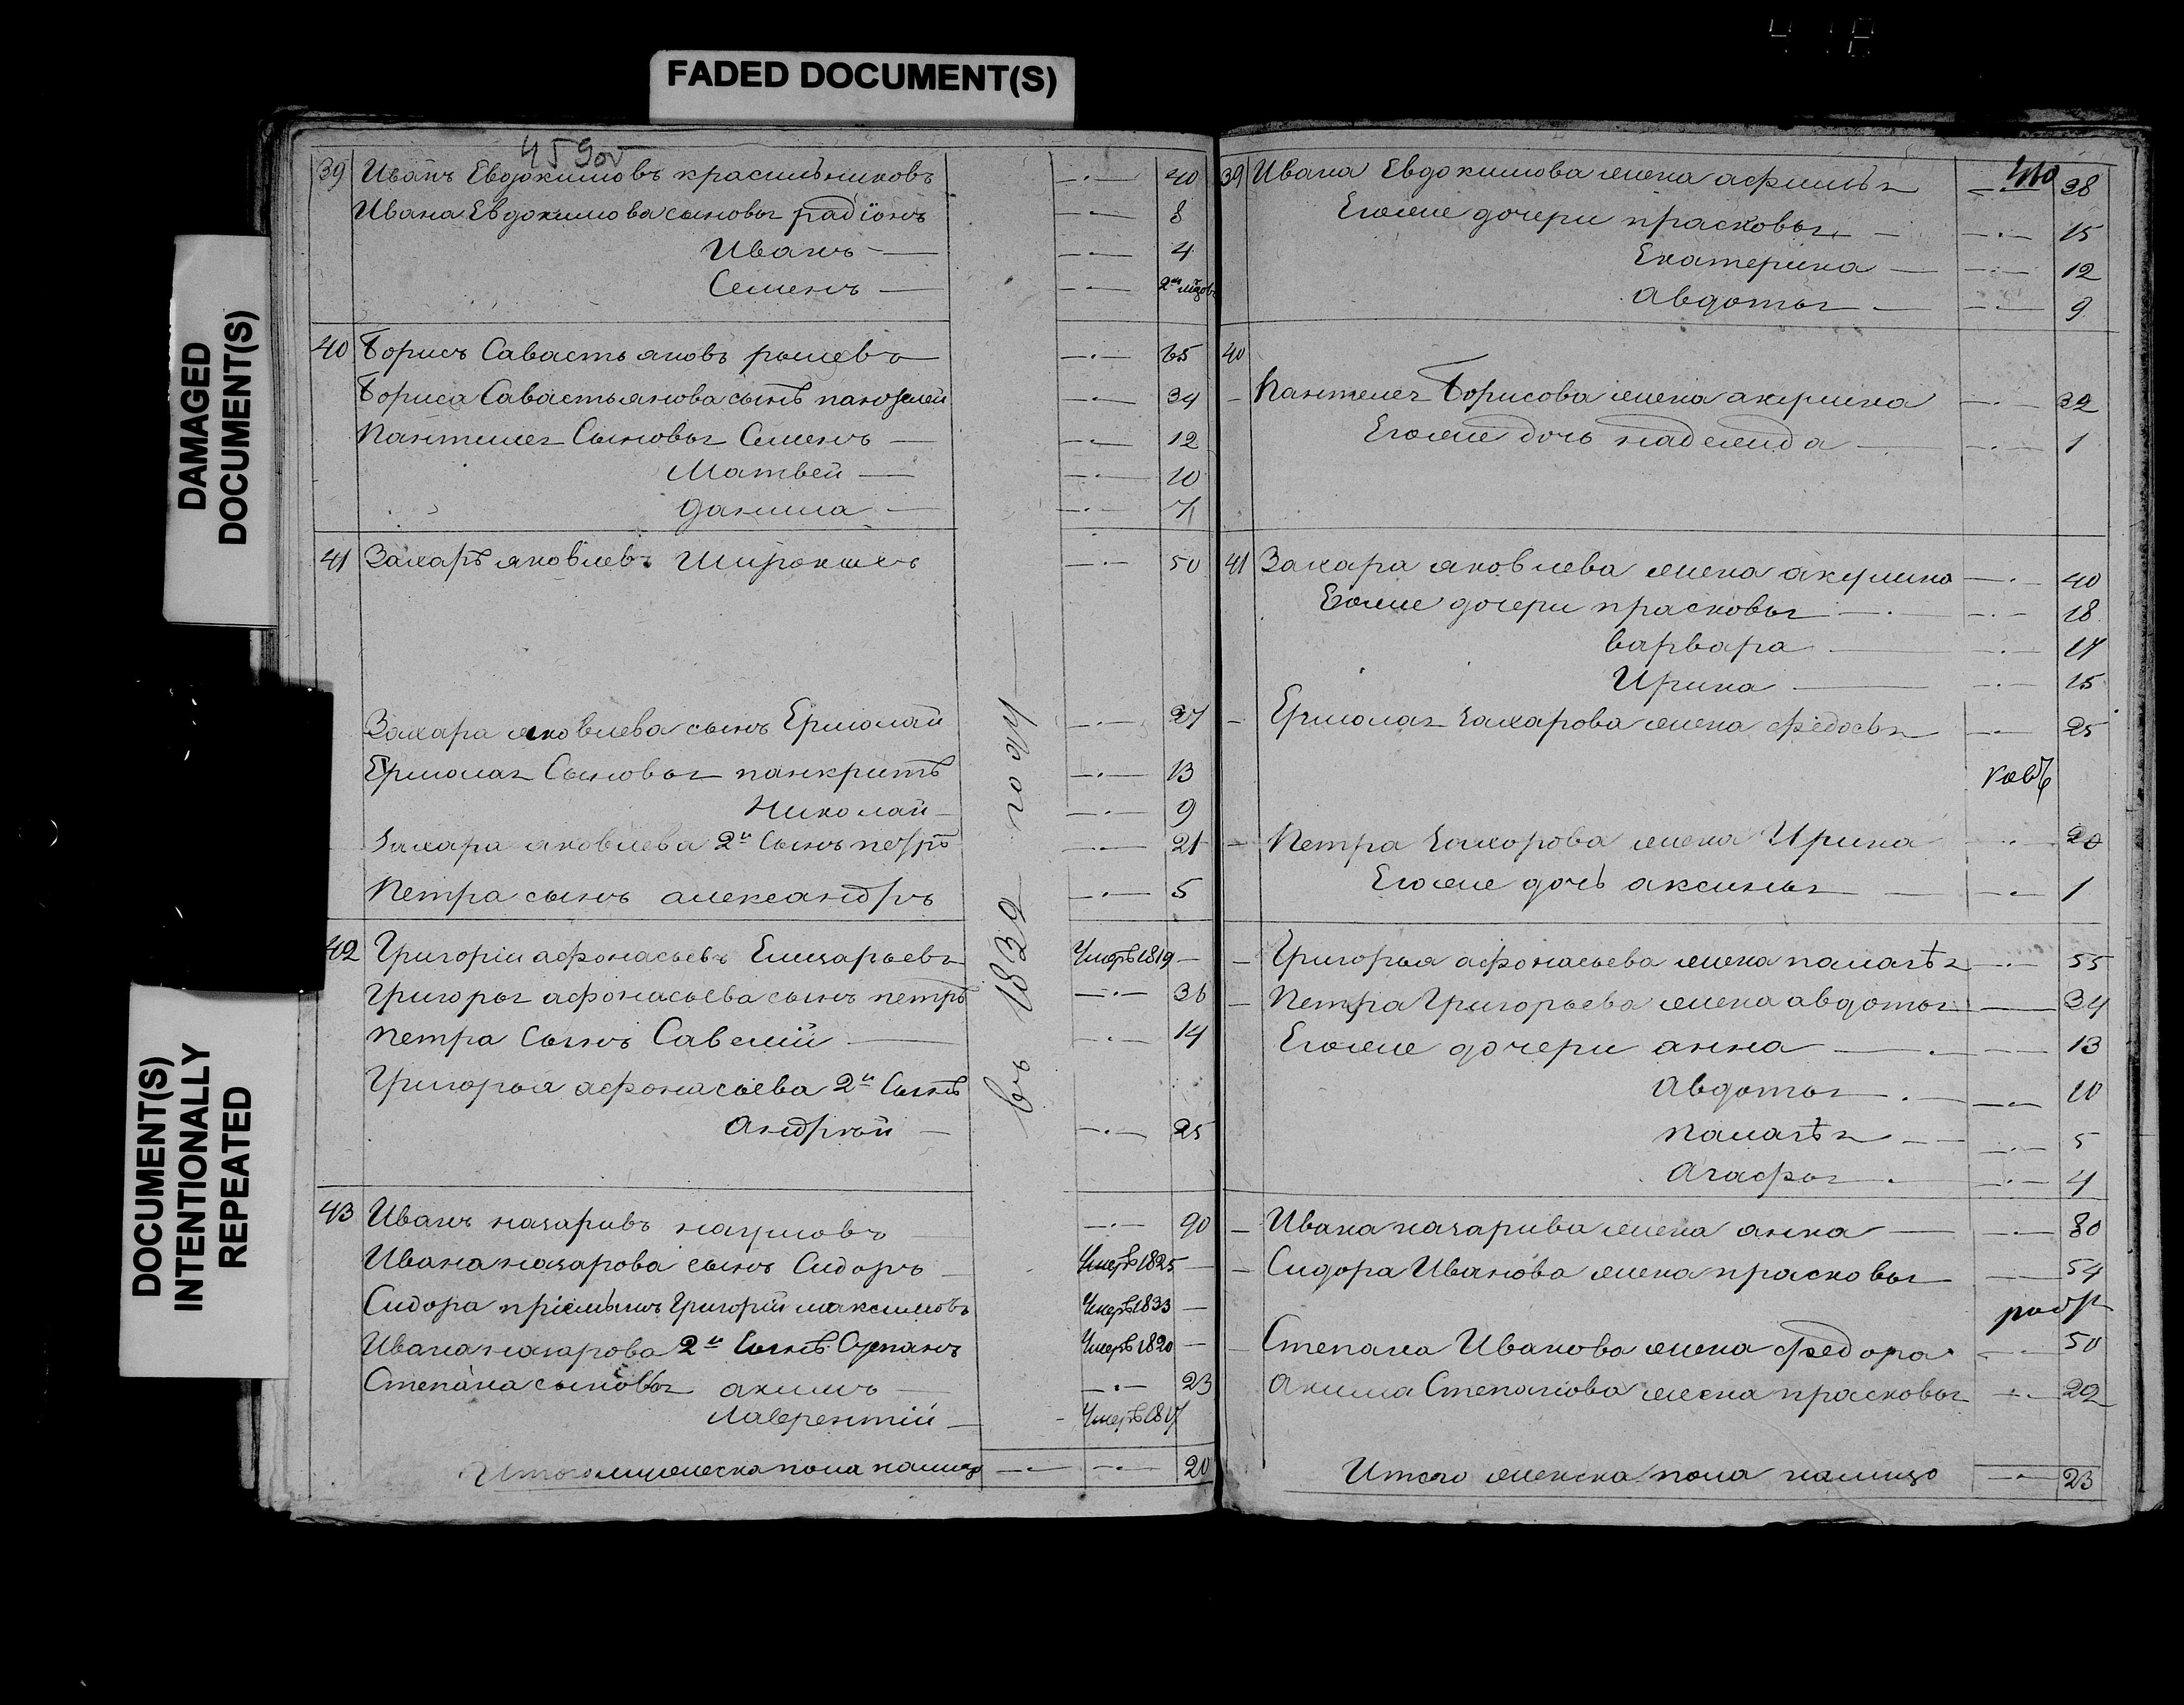 FADED DOCUMENT(S)
DAMAGED
DOCUMENT(S)
DOCUMENT(S)
INTENTIONALLY
REPEATED
459об
39 Иванъ Евдокимовъ красильниковъ 40
Ивана Евдокимова сыновья радіонъ 8
Иванъ 4
Семенъ 2
40 Борисъ Савастьяновъ 65
Бориса Савастьянова сынъ пантелей 34
Пантелея Сыновья Семенъ 12
Матвей 10
данила 7
41 Захаръ яковлевъ 50
Захара яковлева сынъ Ермолай 27
Ермолая Сыновья панкратъ 13
Николай 9
Захара яковлева 2й Сынъ петръ 21
Петра сынъ александръ 5
42 Григорій афонасьевъ Елизарьевъ Умеръ 1819
Григорья афонасьева сынъ петръ 36
Петра Сынъ Савелій 14
Григорья афонасьева 2й Сынъ
Андрей 25
43 Иванъ назаровъ наумовъ 90
Ивана назарова сынъ Сидоръ Умеръ 1825
Сидора пріемышъ Григорій максимовъ Умеръ 1833
Ивана назарова 2й Сынъ Степанъ Умеръ 1820
Степана сыновья акимъ 23
Лаврентій Умеръ 1817
Итого мужеска пола налицо 20
въ 1832 году
39 Ивана Евдокимова жена афимья 38
Егоже дочери прасковья 15
Екатерина 12
Авдотья 9
40
Пантелея Борисова жена акулина 32
Егоже дочь надежда 1
41 Захара яковлева жена акулина 40
Егоже дочери прасковья 18
варвара 17
Ирина 15
Ермолая захарова жена федосья 25
Петра Захорова жена Ирина 20
Егоже дочь аксинья 1
Григорья афонасьева жена палагея 55
Петра Григорьева жена авдотья 34
Егоже дочери анна 13
Авдотья 10
Палагея 5
Агафья 4
Ивана назарива жена анна 80
Сидора Иванова жена прасковья 54
Степана Иванова жена федора 50
Акима Степанова жена прасковья 22
Итого женска пола налицо 23